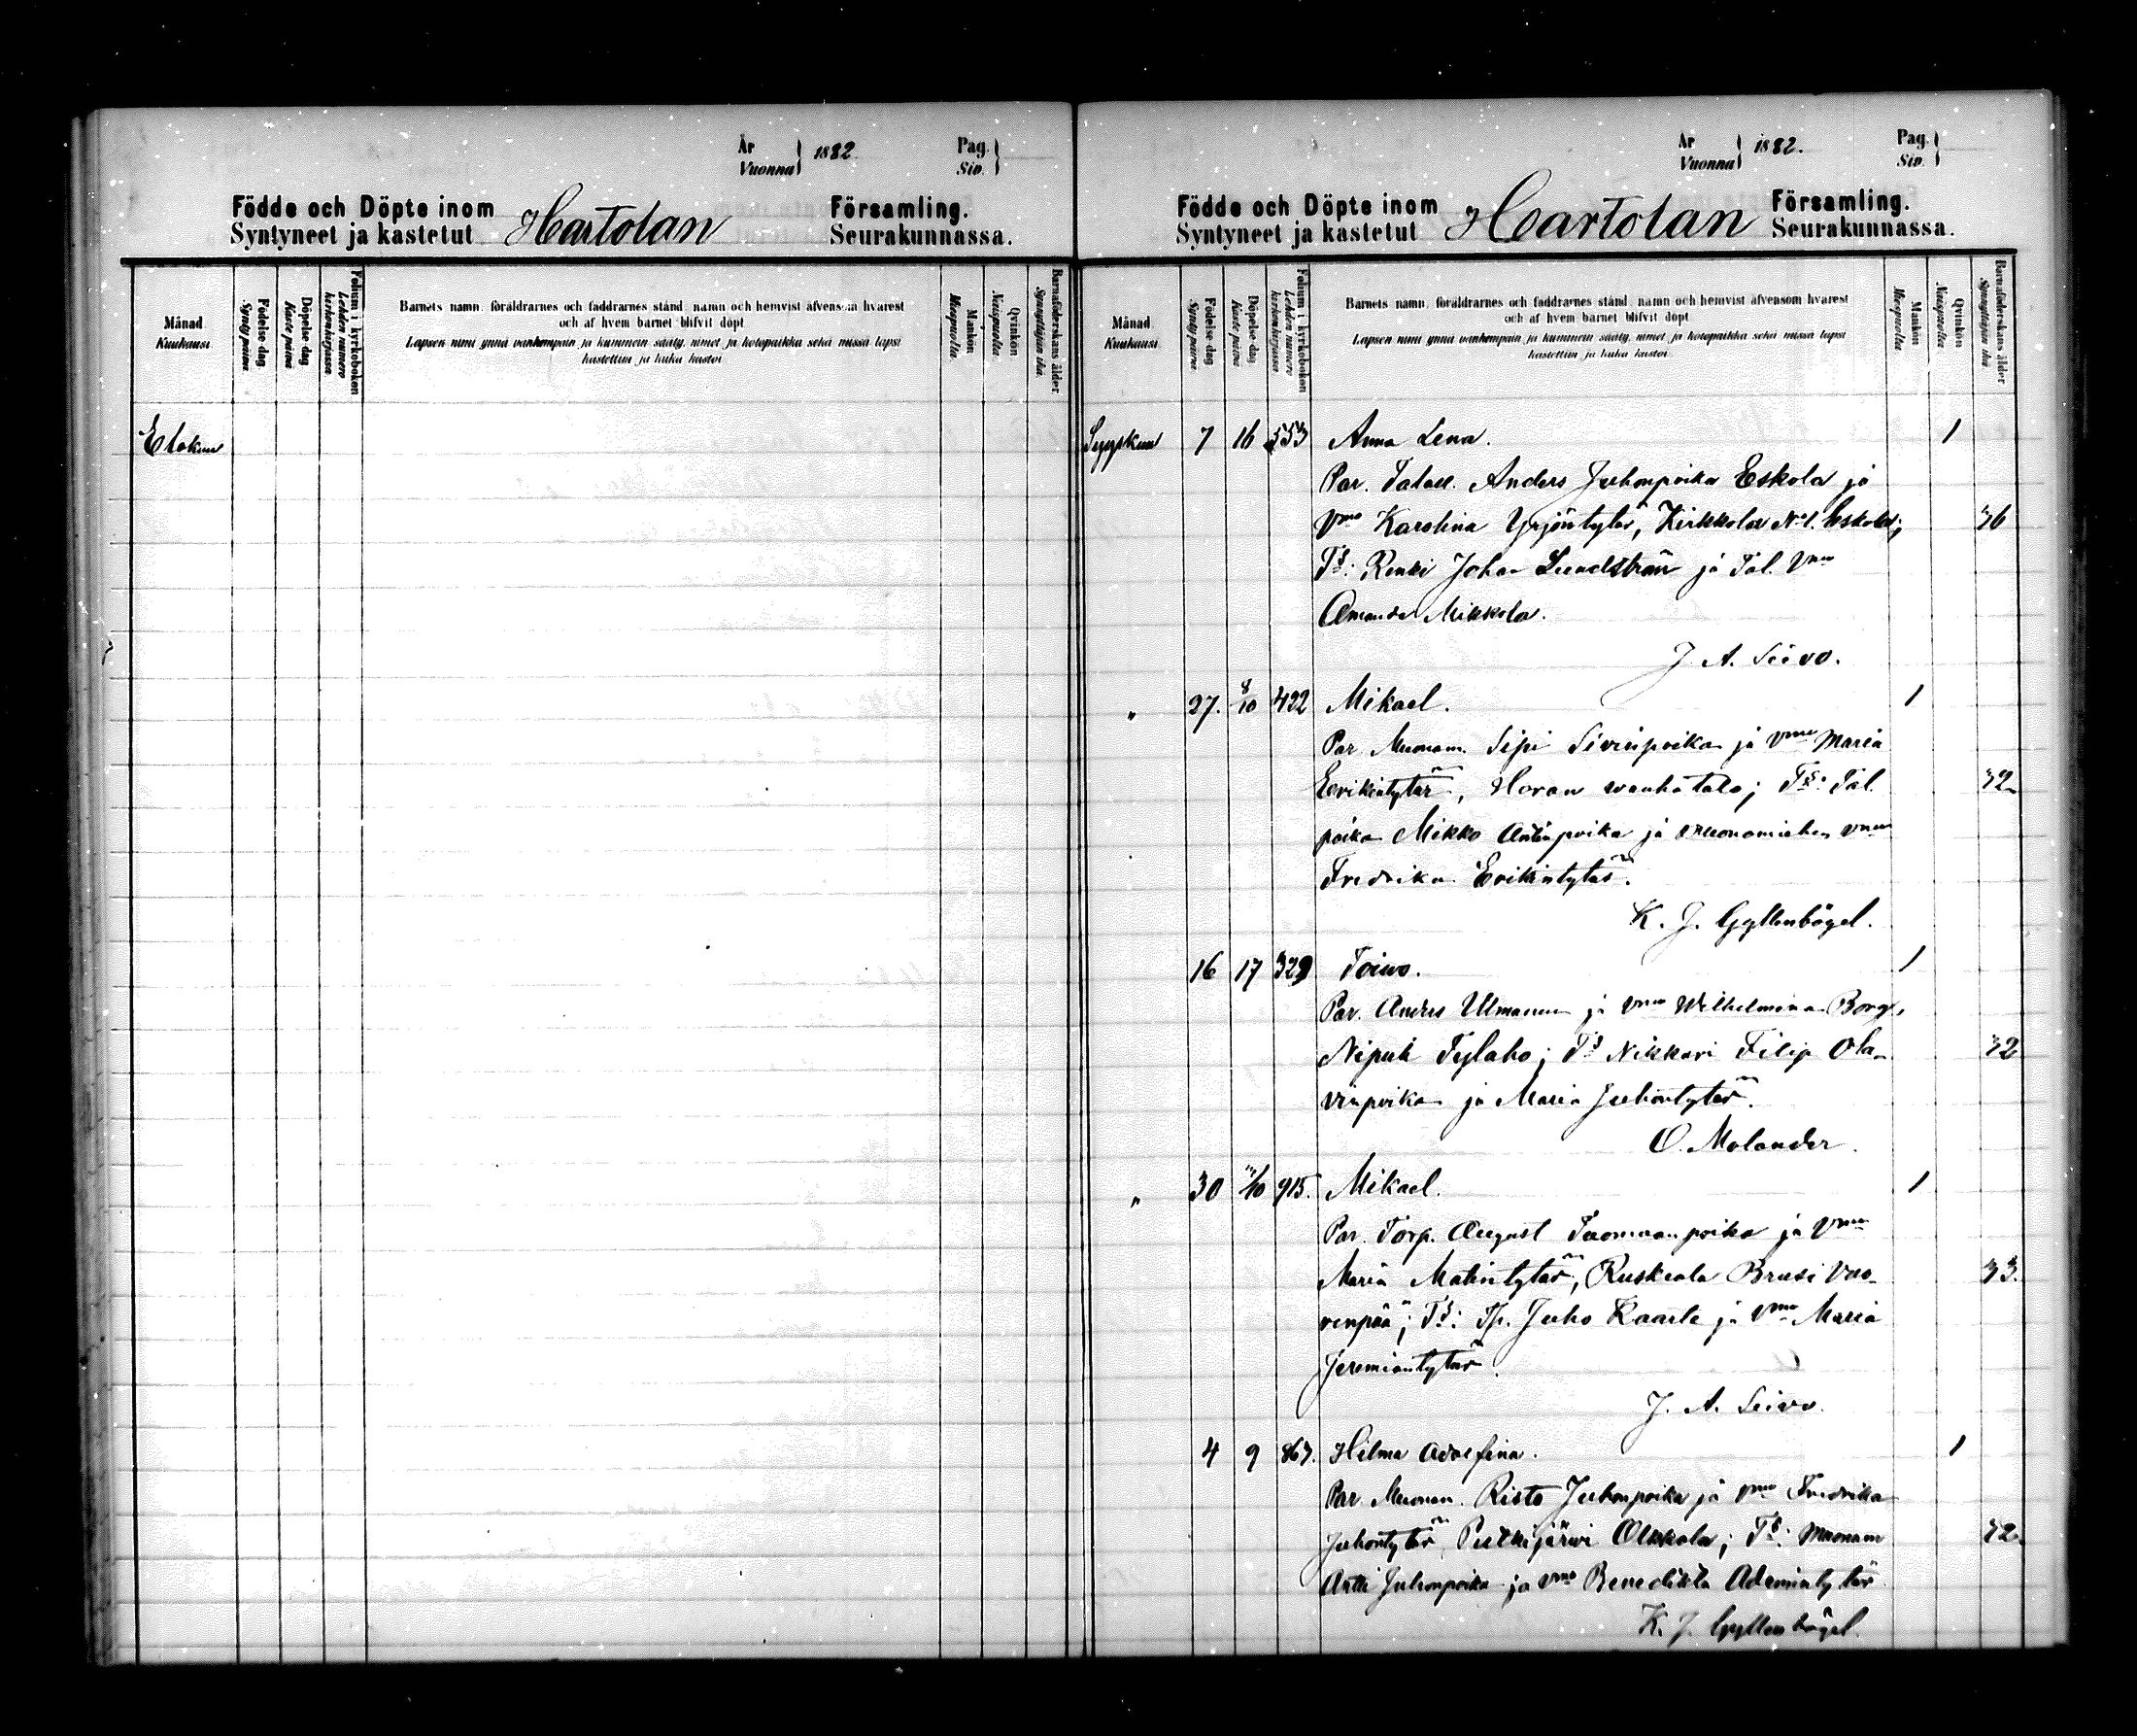 År
Vuonna 1882.
Pag.
Siv.
Födde och Döpte inom
Syntyneet ja kastetut
Hartolan
Församling.
Seurakunnassa.
Månad.
Kuukausi.
Födelse dag
Synty päivä
Döpelse dag
Kaste päivä
Folium i kyrkoboken
Lehden numero kirkonkirjassa
Barnets namn, föräldrarnes och faddrarnes stånd, namn och hemvist äfvensom hvarest
och af hvem barnet blifvit döpt.
Lapsen nimi ynnä vanhempain ja kummein sääty, nimet ja kotopaikka sekä missä lapsi
kastettiin ja kuka kastoi.
Mankön
Miespuolia
Qvinkön
Naispuolia
Barnaföderskans ålder
Synnyttäjän ikä
Elokuu
År
Vuonna 1882.
Pag.
Siv.
Födde och Döpte inom
Syntyneet ja kastetut
Hartolan
Församling.
Seurakunnassa.
Månad.
Kuukausi.
Födelse dag
Synty päivä
Döpelse dag
Kaste päivä
Folium i kyrkoboken
Lehden numero kirkonkirjassa
Barnets namn, föräldrarnes och faddrarnes stånd, namn och hemvist äfvensom hvarest
och af hvem barnet blifvit döpt.
Lapsen nimi ynnä vanhempain ja kummein sääty, nimet ja kotopaikka sekä missä lapsi
kastettiin ja kuka kastoi.
Mankön
Miespuolia
Qvinkön
Naispuolia
Barnaföderskans ålder
Synnyttäjän ikä
Syyskuu 7 16 553 Anna Lena. 1
Par. Talall. Anders Juhonpoika Eskola ja
Vmo Karolina Yrjöntytär, Kirkkola No 1. Eskola; 36
Ts: Renki Johan Lundström ja Tal. Vmo
Amanda Mikkola.
J. A. Siivo.
" 27. 8/10 422 Mikael. 1
Par. Muonam. Sipi Sivinpoika ja Vmo Maria
Eerikintytär, Horan wanhatalo; Ts: Tal. 32
poika Mikko Antinpoika ja muonamiehen vmo
Fredrika Erikintytär.
K. J. Gyllenbögel.
16 17 329 Toivo. 1
Par. Anders Ulmanen ja Vmo Wilhelmina Borg,
Nipuli Tylaho; Ts Nikkari Filip Ola- 32
vinpoika ja Maria Juhontytär.
O. Molander.
" 30 /10 915. Mikael. 1
Par. Torp. August Tuomaanpoika ja Vmo
Maria Matintytär, Ruskeala Brusi Vuo- 33.
renpää; Ts: Tp. Juho Kaarle ja Vmo Maria
Jeremiantytär.
J. A. Siivo.
4 9 863. Hilma Adolfina. 1
Par. Muonam. Risto Juhonpoika ja vmo Fredrika
Juhontytär, Putkijärvi Olkkola; Ts: Muonam 32.
Antti Juhonpoika ja vmo Benedikta Adamintytär
K. J. Gyllenbögel.